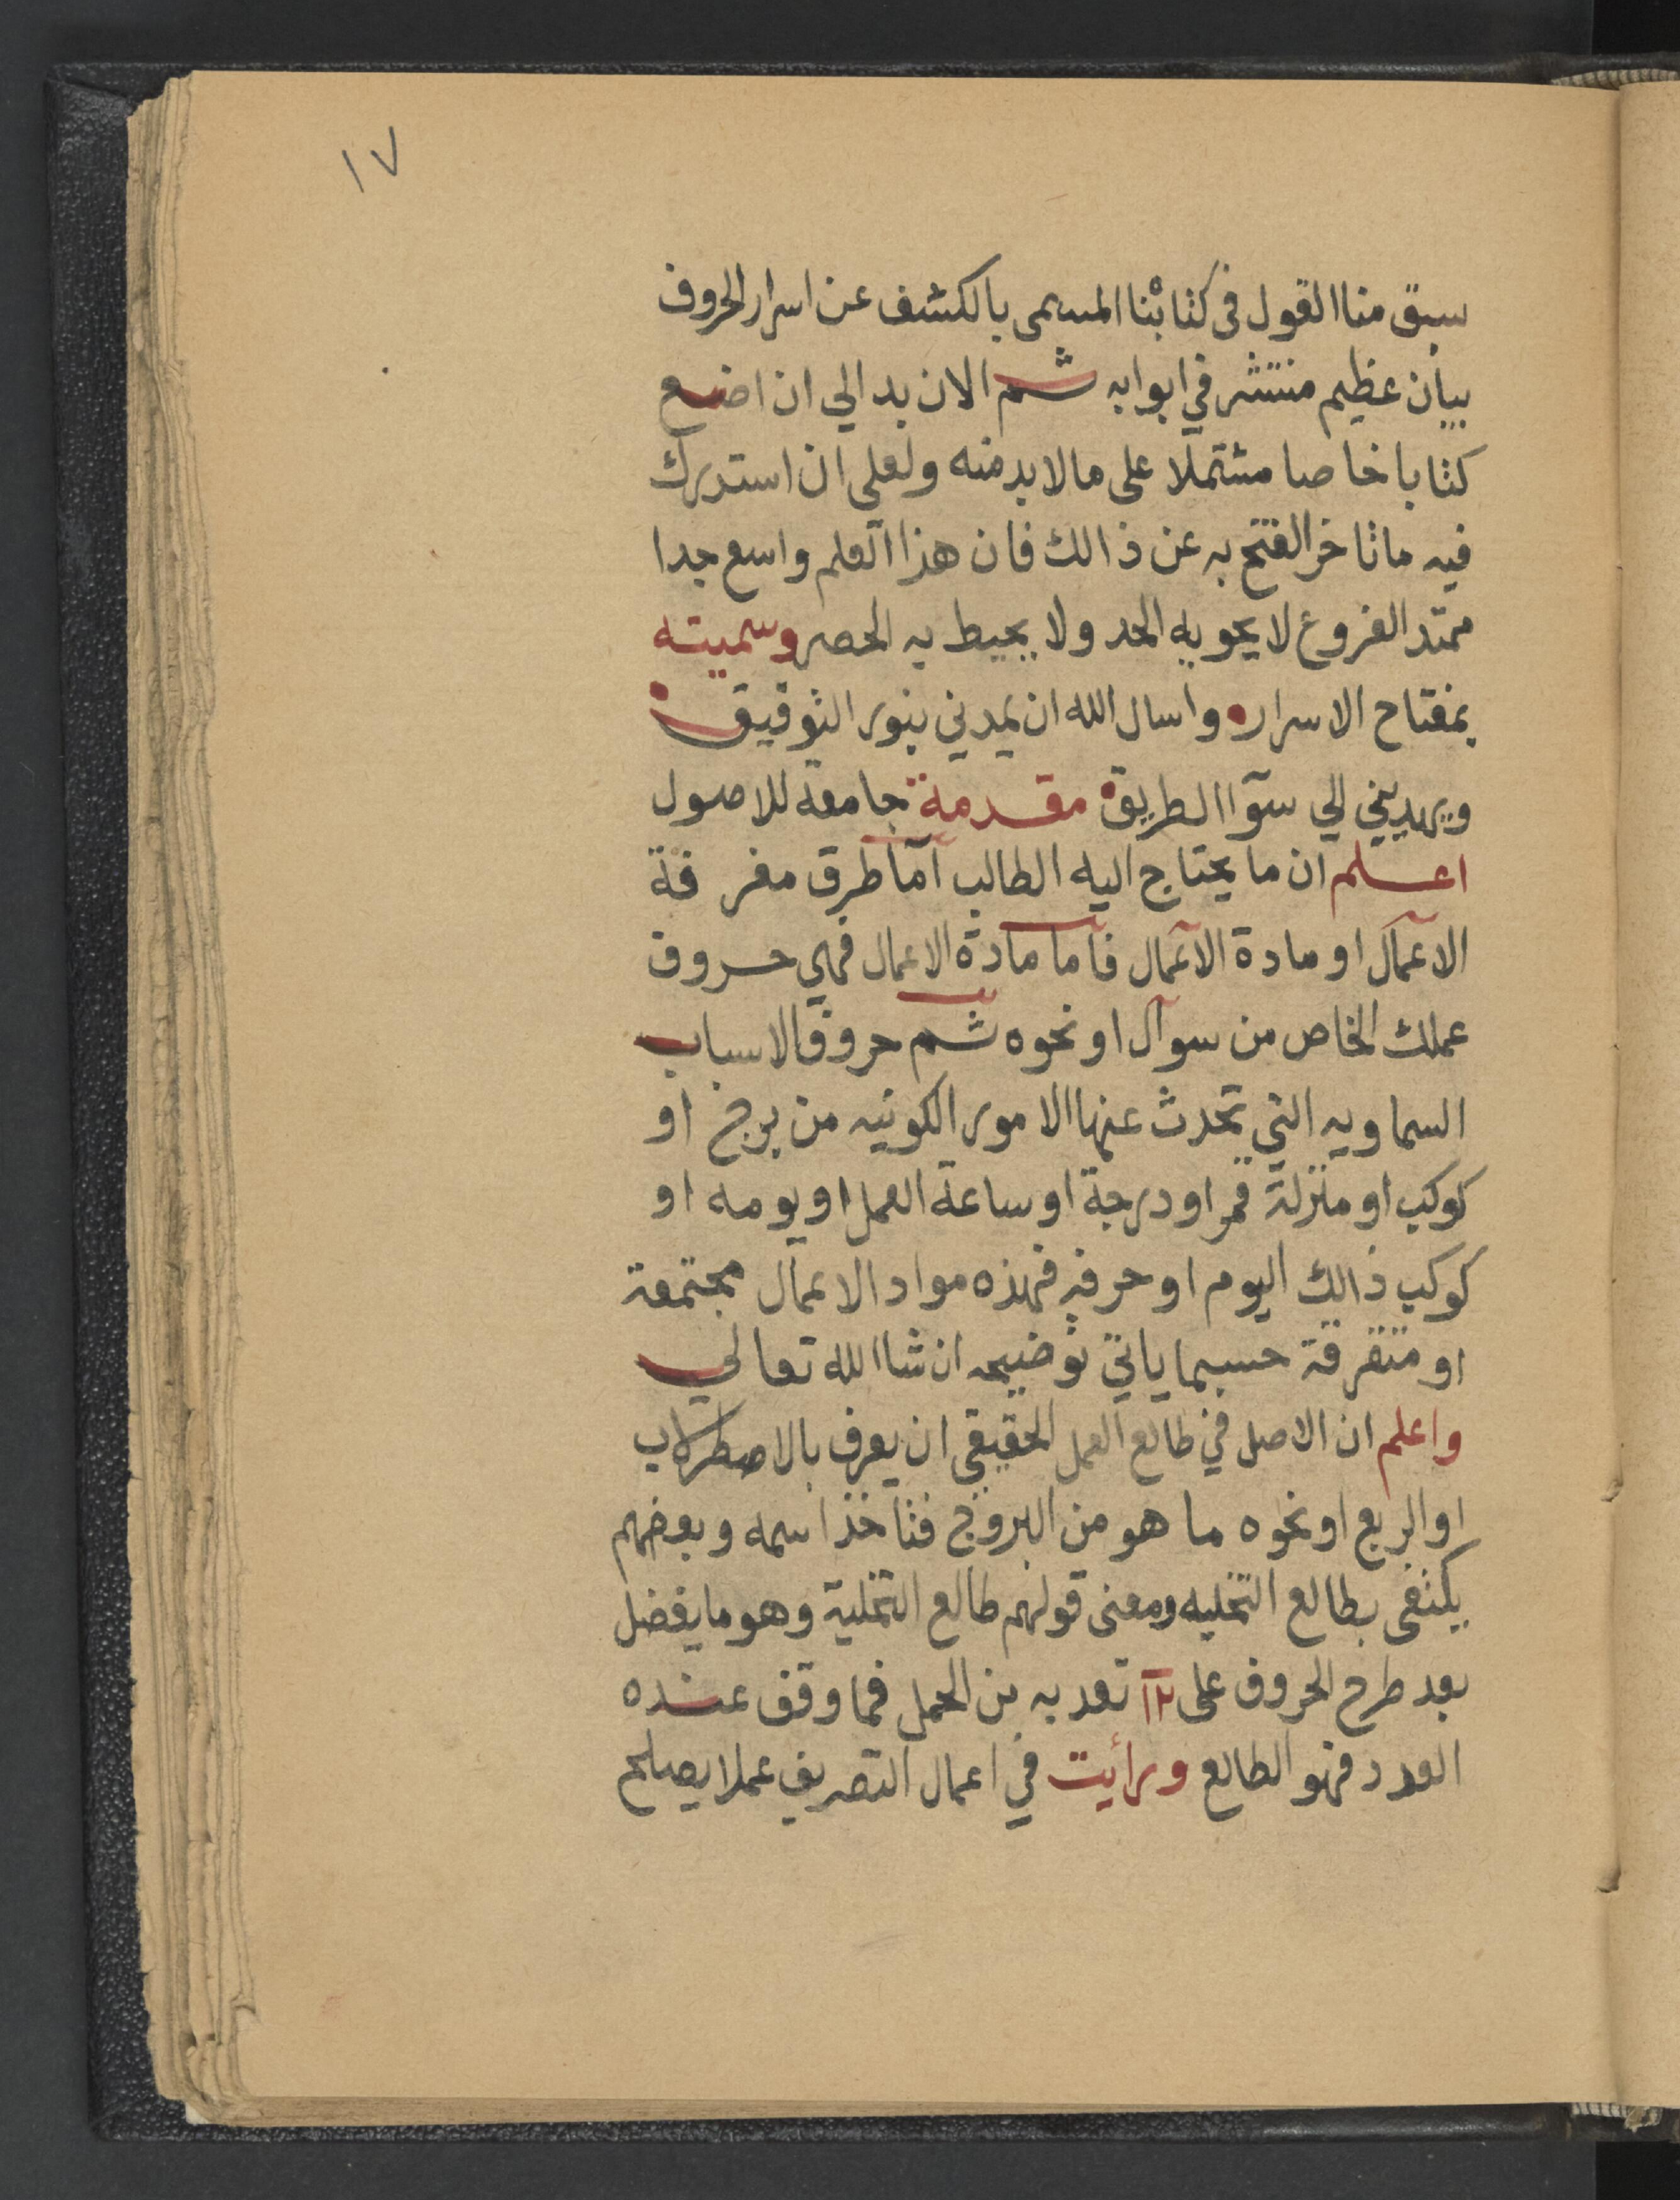 ١٧
سبق منا القول فى كتابنا المسمى بالكشف عن اسرار الحروف
بيان عظيم منتشر في ابوابه ثم الان بدا لي ان اضع
كتابا خاصا مشتملا على ما لا بد منه ولعلى ان استدرك
فيه ما تاخر الفتح به عن ذالك فان هذا العلم واسع جدا
ممتد الفروع لا يحويه الحد ولا يحيط به الحصر وسميته
بمفتاح الاسرار واسال الله ان يمدني بنور التوفيق
ويهديني الي سوآ الطريق مقدمة جامعة للاصول
اعلم ان ما يحتاج اليه الطالب آما طرق معرفة
الآعمال او مادة الآعمال فآما مادة الاعمال فهي حروف
عملك الخاص من سوآل او نحوه ثم حروف الاسباب
السماويه التي تحدث عنها الامور الكونيه من برج او
كوكب او منزلة قمر او درجة او ساعة العمل او يومه او
كوكب ذالك اليوم او حرفه فهذه مواد الاعمال مجتمعة
او متفرقة حسبما ياتي توضيحه ان شاالله تعالي
واعلم ان الاصل في طالع العمل الحقيقي ان يعرف بالاصطرلاب
او الربع او نحوه ما هو من البروج فتاخذ اسمه وبعضهم
يكتفى بطالع التخليه ومعنى قولهم طالع التخلية وهو ما يفضل
بعد طرح الحروف على ١٢ تعد به من الحمل فما وقف عنده
العدد فهو الطالع ورأيت في اعمال التصريف عملا يصلح